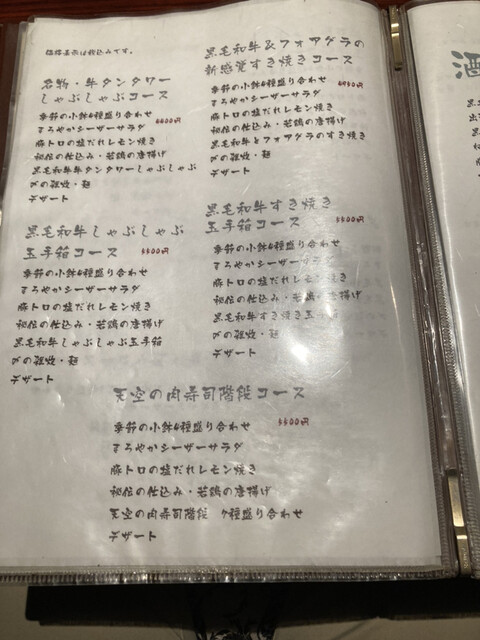 価格表示は税込みです。
名物・牛タンタワー
しゃぶしゃぶコース
4400円
季節の小鉢4種盛り合わせ
まろやかシーザーサラダ
豚トロの塩だれレモン焼き
秘伝の仕込み・若鶏の唐揚げ
黒毛和牛牛タンタワーしゃぶしゃぶ
〆の雑炊・麺
デザート
黒毛和牛しゃぶしゃぶ
玉手箱コース
5500円
季節の小鉢4種盛り合わせ
まろやかシーザーサラダ
豚トロの塩だれレモン焼き
秘伝の仕込み・若鶏の唐揚げ
黒毛和牛しゃぶしゃぶ玉手箱
〆の雑炊・麺
デザート
黒毛和牛&フォアグラの
新感覚すき焼きコース
4950円
季節の小鉢4種盛り合わせ
まろやかシーザーサラダ
豚トロの塩だれレモン焼き
秘伝の仕込み・若鶏の唐揚げ
黒毛和牛とフォアグラのすき焼き
〆の雑炊・麺
デザート
黒毛和牛すき焼き
玉手箱コース
5500円
季節の小鉢4種盛り合わせ
まろやかシーザーサラダ
豚トロの塩だれレモン焼き
秘伝の仕込み・若鶏の唐揚げ
黒毛和牛すき焼き玉手箱
〆の雑炊・麺
デザート
天空の肉寿司階段コース
5500円
季節の小鉢4種盛り合わせ
まろやかシーザーサラダ
豚トロの塩だれレモン焼き
秘伝の仕込み・若鶏の唐揚げ
天空の肉寿司階段 9種盛り合わせ
デザート
酒